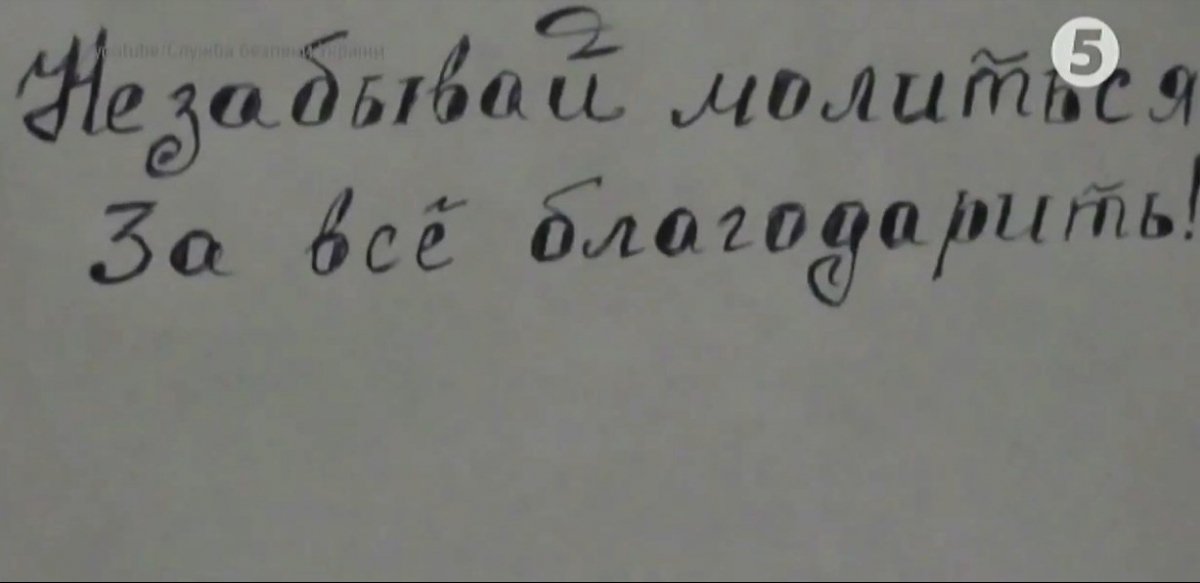 youtube/Служба безпеки України
5
Не забывай молиться
За всё благодарить!